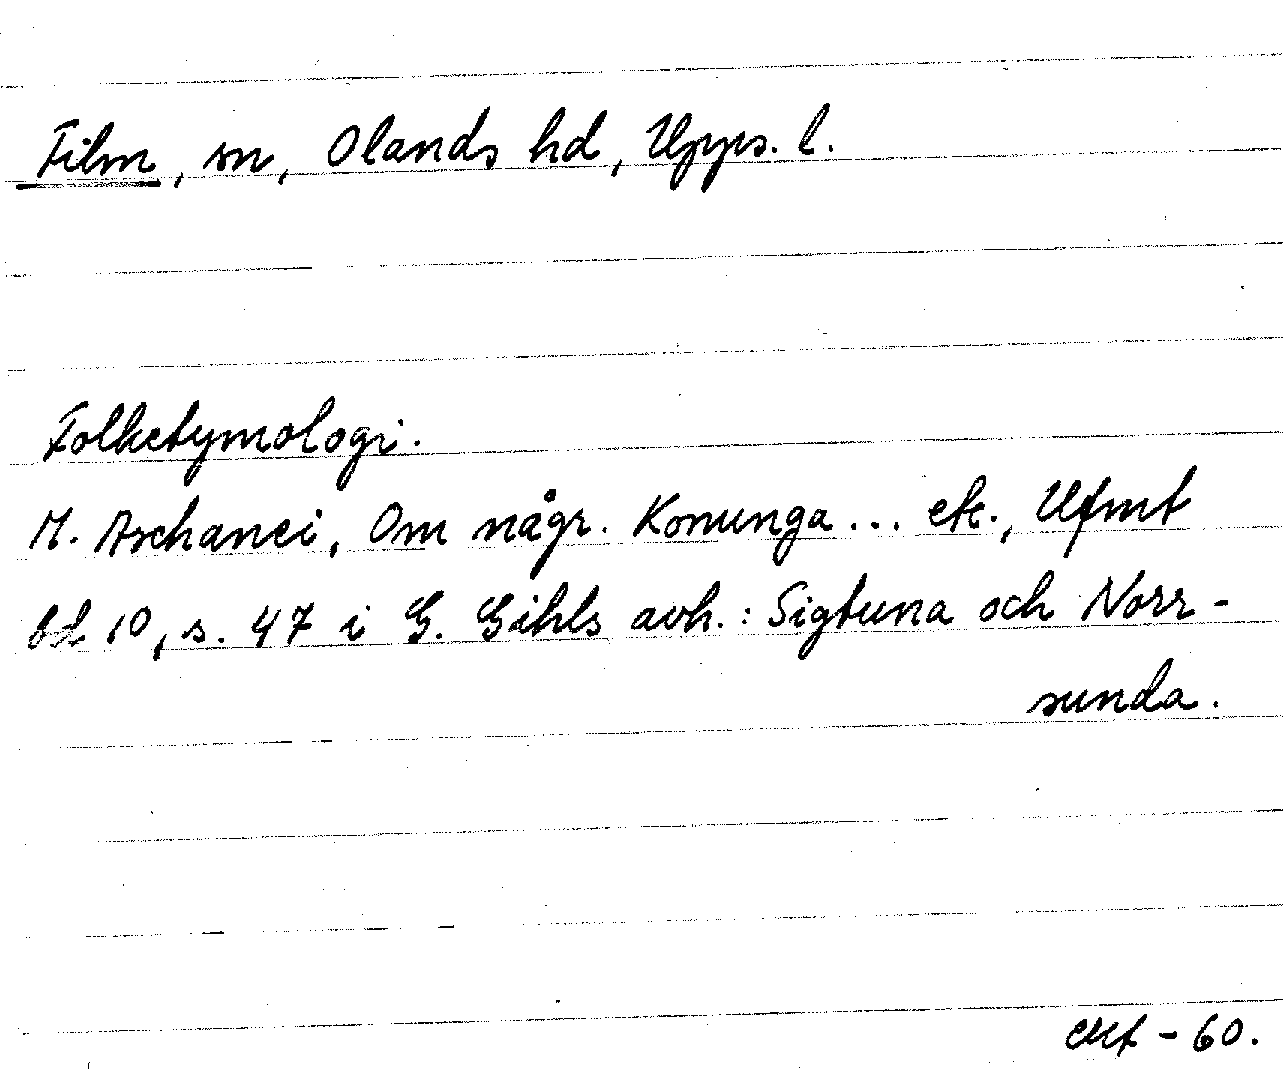 Film, sn, Olands hd, Upps. l.
Folketymologi.
M. Aschanei, Om någr. Konunga... etc., Ufmt
bd 10, s. 47 i G. Gihls avh.: Sigtuna och Norr-
sunda.
- 60.